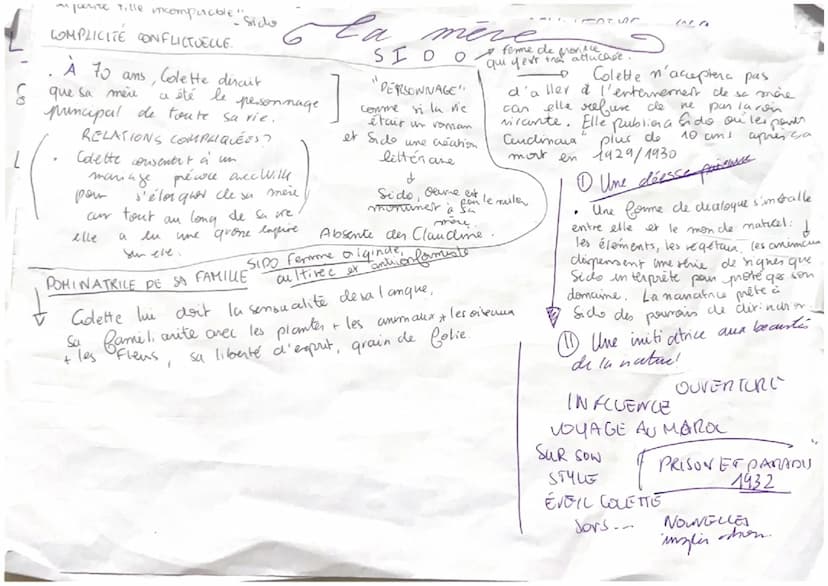 fille incomparable"
- Sido
COMPLICITÉ CONFLICTUELLE
La mère
SIDO
→ femme de province
qui y est très attachée.
. À 70 ans, Colette dirait
que sa mère a été le personnage
principal de toute sa vie.
"PERSONNAGE"
comme si la vie
était un roman
et Sido une création
littéraire
↓
Sido, œuvre est
monument à sa
mère.
Absente des Claudine.
RELATIONS COMPLIQUÉES?
. Colette consenti à un
mariage précoce avec Willy
pour s'éloigner de sa mère
car tout au long de sa vie
elle a eu une grosse
sur elle.
SIDO femme originale,
cultivée et anticonformiste
DOMINATRICE DE SA FAMILLE
Colette lui doit la sensualité de sa langue,
sa familiarité avec les plantes + les animaux + les oiseaux
+ les fleurs, sa liberté d'esprit, grain de folie.
Colette n'acceptera pas
d'aller à l'enterrement de sa mère
car elle refuse de ne pas la voir
vivante. Elle publiera Sido ou les points
Cardinaux" plus de 10 ans après sa
mort en 1929/1930
I Une déesse
. Une forme de dialogue s'installe
entre elle et le monde naturel:
les éléments, les végétaux, les animaux
dispensent une série de signes que
Sido interprète pour protéger son
domaine. La narratrice prête à
Sido des pouvoirs de
II Une initiatrice aux beautés
de la nature
OUVERTURE
INFLUENCE
VOYAGE AU MAROC
SUR SON
STYLE
"PRISON ET PARADIS"
1932
ÉVEIL COLETTE
NOUVELLES